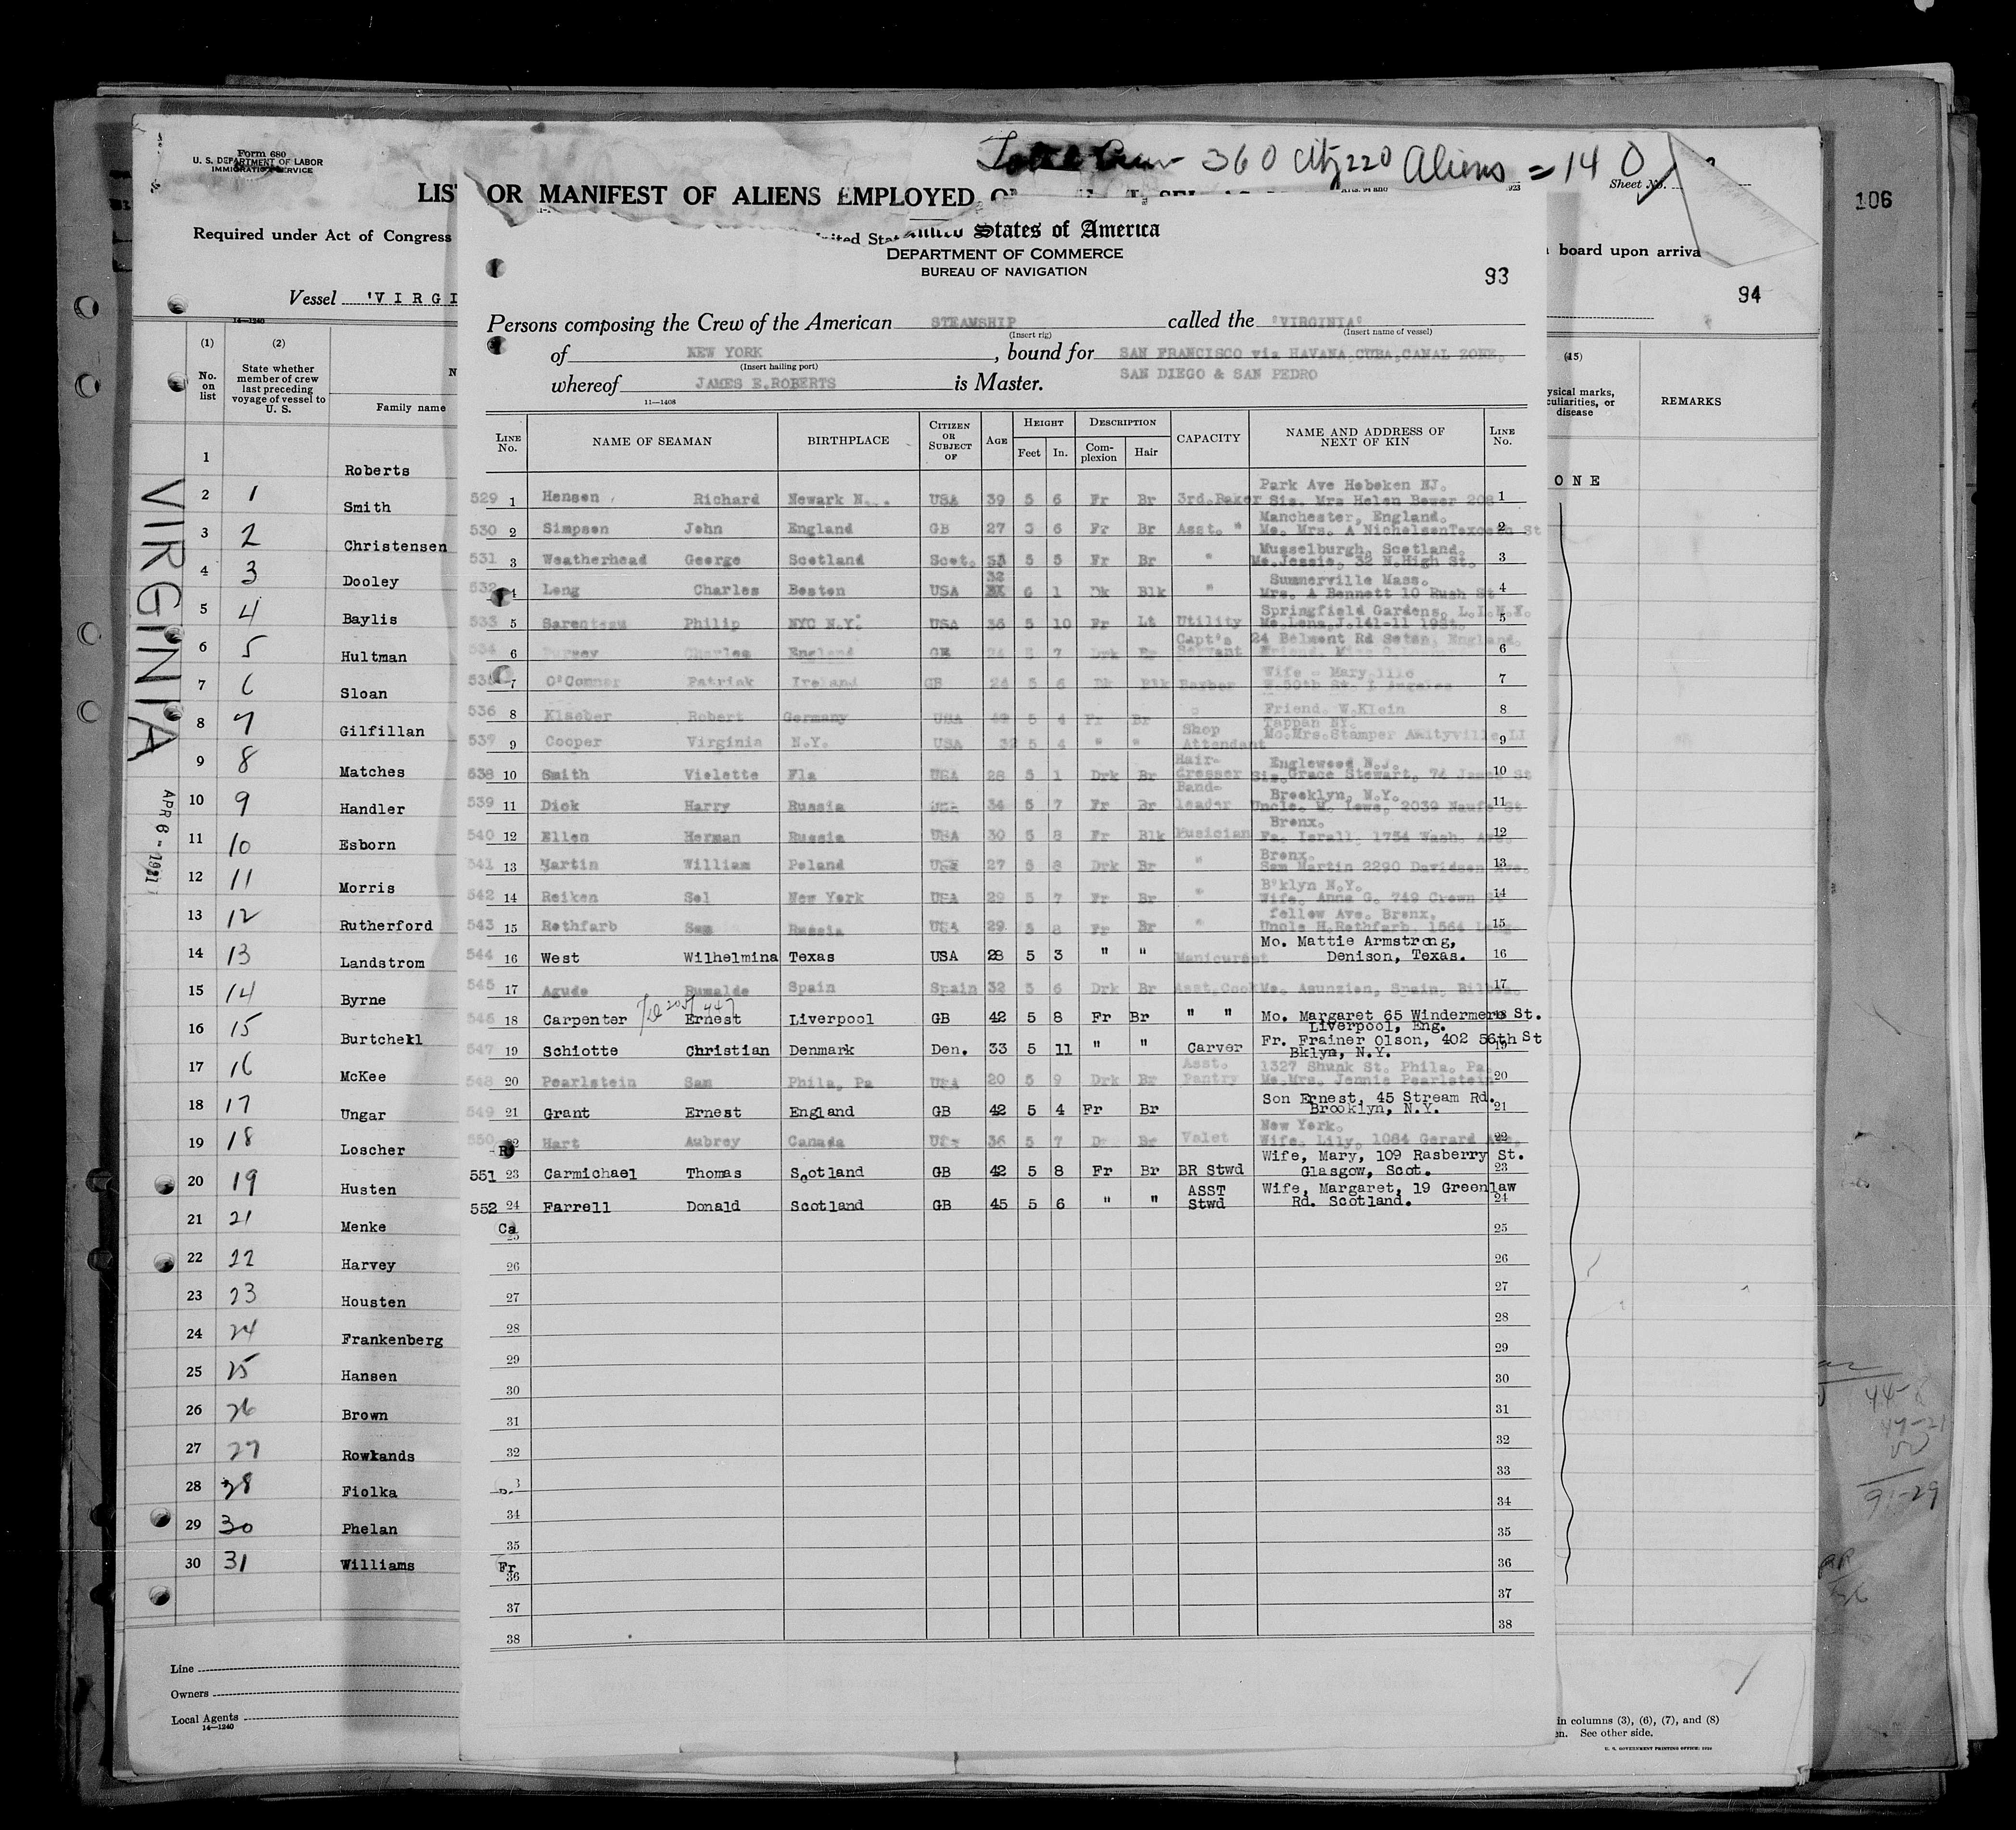 Form 680
U. S. DEPARTMENT OF LABOR
IMMIGRATION SERVICE
360 220 Aliens = 140
Sheet No.
106
LIST OR MANIFEST OF ALIENS EMPLOYED
Required under Act of Congress
board upon arriva
94
Vessel 'VIRGI
14—1240
(1) No. on list
(2) State whether member of crew last preceding voyage of vessel to U. S.
Family name
VIRGINIA
APR 6 - 1931
1 Roberts
2 1 Smith
3 2 Christensen
4 3 Dooley
5 4 Baylis
6 5 Hultman
7 6 Sloan
8 7 Gilfillan
9 8 Matches
10 9 Handler
11 10 Esborn
12 11 Morris
13 12 Rutherford
14 13 Landstrom
15 14 Byrne
16 15 Burtchell
17 16 McKee
18 17 Ungar
19 18 Loscher
20 19 Husten
21 21 Menke
22 22 Harvey
23 23 Housten
24 24 Frankenberg
25 25 Hansen
26 26 Brown
27 27 Rowlands
28 28 Fiolka
29 30 Phelan
30 31 Williams
Line
Owners
Local Agents
14—1240
United States of America
DEPARTMENT OF COMMERCE
BUREAU OF NAVIGATION
93
Persons composing the Crew of the American STEAMSHIP called the "VIRGINIA"
(Insert rig) (Insert name of vessel)
of NEW YORK, bound for SAN FRANCISCO via HAVANA, CUBA, CANAL ZONE,
(Insert hailing port)
SAN DIEGO & SAN PEDRO
whereof JAMES E. ROBERTS is Master.
11—1408
LINE No. NAME OF SEAMAN BIRTHPLACE CITIZEN OR SUBJECT OF AGE HEIGHT Feet In. DESCRIPTION Complexion Hair CAPACITY NAME AND ADDRESS OF NEXT OF KIN LINE No.
Park Ave Hoboken NJ.
529 1 Hansen Richard Newark N. USA 39 5 6 Fr Br 3rd.Baker Sis. Mrs Helen Bower 208 1
Manchester, England.
530 2 Simpson John England GB 27 5 6 Fr Br Asst. " Mo. Mrs. A Nicholson St 2
Musselburgh, Scotland.
531 3 Weatherhead George Scotland Scot. 5 5 Fr Br " Mo.Jessie, 32 N.High St. 3
Summerville Mass.
532 4 Long Charles Boston USA 32 6 1 Dk Blk " Mrs. A Bennett 10 Rush St 4
Springfield Gardens, L.I.N.Y.
533 5 Philip NYC N.Y. USA 36 5 10 Fr Lt Utility Mo.Lena,J.141-11 5
24 Belmont Rd England.
534 6 Charles England GB 5 7 Drk Br Capt's Servant Friend. 6
Wife - Mary 1116
535 7 O'Conner Patrick Ireland GB 24 5 6 Dk Blk Barber W.50th St. 7
536 8 Klaeber Robert Germany USA 5 4 Fr Br " Friend. W.Klein 8
Tappan NY.
539 9 Cooper Virginia N.Y. USA 32 5 4 " " Shop Attendant Mo.Mrs.Stamper Amityville LI 9
Englewood N.J.
538 10 Smith Violette Fla USA 28 5 1 Drk Br Hair-dresser Sis.Grace Stewart, 74 James St 10
Brooklyn, N.Y.
539 11 Dick Harry Russia 34 5 7 Fr Br Band-leader Uncle. M. 2039 11
Bronx.
540 12 Ellen Herman Russia USA 30 5 8 Fr Blk Musician Fa. Israll, 1754 Wash. Ave. 12
Bronx.
541 13 Martin William Poland USA 27 5 8 Drk Br " Sam Martin 2290 Davidson Ave. 13
B'klyn N.Y.
542 14 Reiken Sol New York USA 29 5 7 Fr Br " Wife. Anna G. 749 Crown St 14
fellow Ave. Bronx.
543 15 Rothfarb Sam Russia USA 29 5 8 Fr Br " Uncle H.Rothfarb, 1564 15
Mo. Mattie Armstrong,
544 16 West Wilhelmina Texas USA 28 5 3 " " Manicurest Denison, Texas. 16
545 17 Agudo Rumalde Spain Spain 32 5 6 Drk Br Asst.Cook Mo. Asunzien, Spain, Bilbao. 17
546 18 Carpenter Ernest Liverpool GB 42 5 8 Fr Br " " Mo. Margaret 65 Windermere St. 18
Liverpool, Eng.
547 19 Schiotte Christian Denmark Den. 33 5 11 " " Carver Fr. Frainer Olson, 402 56th St 19
Bklyn, N.Y.
1327 Shunk St. Phila. Pa
548 20 Pearlstein Sam Phila, Pa USA 20 5 9 Drk Br Asst. Pantry Mo.Mrs. Jennie Pearlstein 20
549 21 Grant Ernest England GB 42 5 4 Fr Br Son Ernest, 45 Stream Rd. 21
Brooklyn, N.Y.
New York.
550 22 Hart Aubrey Canada 36 5 7 Br Valet Wife. Lily, 1064 Gerard Ave. 22
551 23 Carmichael Thomas Scotland GB 42 5 8 Fr Br BR Stwd Wife, Mary, 109 Rasberry St. 23
Glasgow, Scot.
552 24 Farrell Donald Scotland GB 45 5 6 " " ASST Stwd Wife, Margaret, 19 Greenlaw 24
Rd. Scotland.
Ca
25 25
26 26
27 27
28 28
29 29
30 30
31 31
32 32
33
34 34
35 35
Fr
36 36
37 37
38 38
(15)
ysical marks, culiarities, or disease
REMARKS
ONE
in columns (3), (6), (7), and (8)
en. See other side.
U. S. GOVERNMENT PRINTING OFFICE
91-29